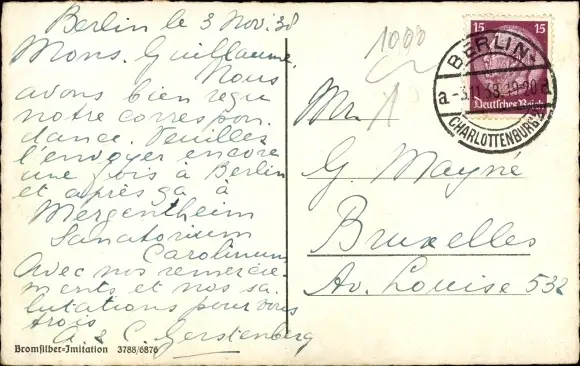 Berlin le 3 Nov. 38
Mons. Guillaume,
Nous
avons bien reçu
notre correspon
dance. Veuillez
l'envoyer encore
une fois à Berlin
et après ça à
Mergentheim
Sanatorium
Carolinum
Avec nos remercie-
ments et nos sa-
lutations pour vous
trois
A. & C. Gerstenberg
Bromsilber-Imitation 3788/6876
1000
15 15
Deutsches Reich
BERLIN-
a -3.11.38.19-20 a
CHARLOTTENBURG
Mr.
G. Mayné
Bruxelles
Av. Louise 532